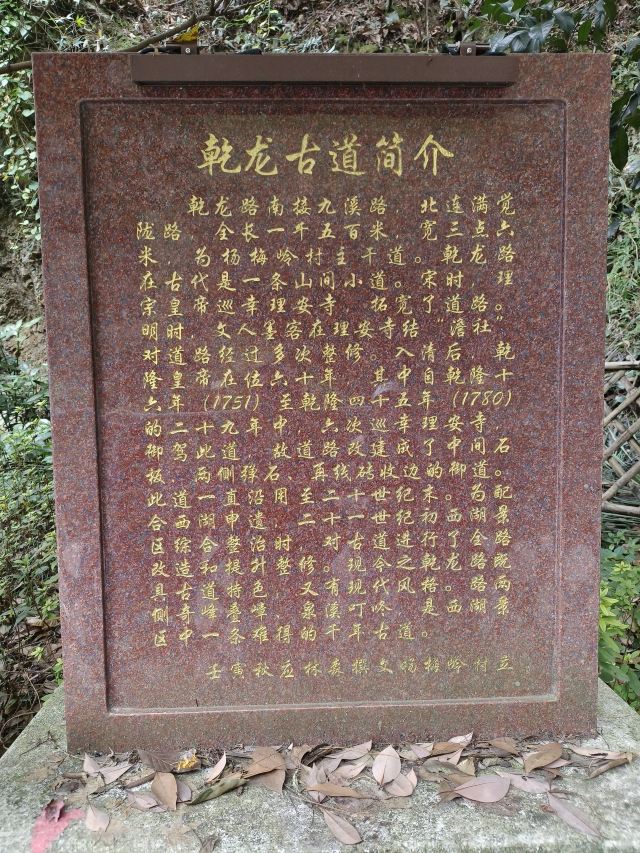 乾龙古道简介
乾龙路南接九溪路,北连满觉
陇路,全长一千五百米,宽三点六
米,为杨梅岭村主干道。乾龙路
在古代是一条山间小道。宋时,理
宗皇帝巡幸理安寺,拓宽了道路。
明时,文人墨客在理安寺结“澹社”
对道路经过多次整修。入清后,乾
隆皇帝在位六十年,其中自乾隆十
六年(1751)至乾隆四十五年(1780)
的二十九年中,六次巡幸理安寺,
御驾此道,故道路改建成了中间石
板两侧弹石、再线砖收边的御道。
此道一直沿用至二十世纪末。为配
合西湖申遗,二十一世纪初西湖景
区综合整治时,对古道进行了全路
改造和提升整修。现今之乾龙路既
具古道特色,又有现代风格。路两
侧奇峰叠嶂,泉溪叮咚,是西湖景
区中一条难得的千年古道。
壬寅秋应林森撰文杨梅岭村立